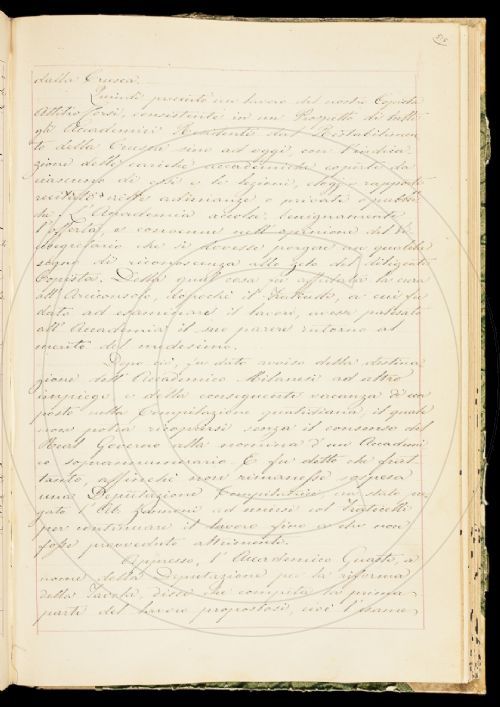 dalla Crusca.
Quindi presentò un lavoro del nostro Copista
Attilio Corsi, consistente in un Prospetto di tutti
gli Accademici Residenti dal Ristabilimen
to della Crusca sino ad oggi, con l'indica
zione delle cariche accademiche coperte da
ciascuno di essi e le lezioni, elogi e rapporti
recitati nelle adunanze o private o pubbli
che. L'Accademia accolse benignamente
l'offerta, e convenne nell'opinione del Vi
cesegretario che si dovesse porgere un qualche
segno di riconoscenza allo zelo del diligente
Copista. Della qual cosa fu affidata la cura
all'Arciconsolo, dopochè il a cui fu
dato ad esaminare il lavoro, avesse palesato
all'Accademia il suo parere intorno al
merito del medesimo.
Dopo ciò, fu dato avviso della destina
zione dell'Accademico Milanesi ad altro
impiego e della conseguente vacanza d'un
posto nella Compilazione quotidiana, il quale
non potrà ricoprirsi senza il consenso del
Real Governo alla nomina d'un Accademi
co soprannumerario. E fu detto che frat
tanto, affinchè non rimanesse sospesa
una Deputazione Compilatrice era stato pre
gato l'Ab. Zannoni ad unirsi col
per continuare il lavoro fino a che non
fosse provveduto altrimenti.
Appresso, l'Accademico Guasti, a
nome della Deputazione per la riforma
della Tavola, disse che compita la prima
parte del lavoro propostosi, cioè l'esame